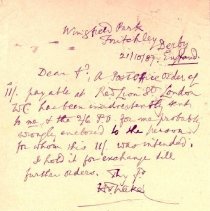 Wingfield Park
Fritchley Derby
21/10/87. England.
Dear Sr. A Post Office Order of
11/. payable at Red Lion St London
WC has been inadvertently sent
to me & the 2/6 P.O for me probably
wrongly enclosed to the person
for whom this 11/. was intended.
I hold it for exchange till
further orders. Thy fd